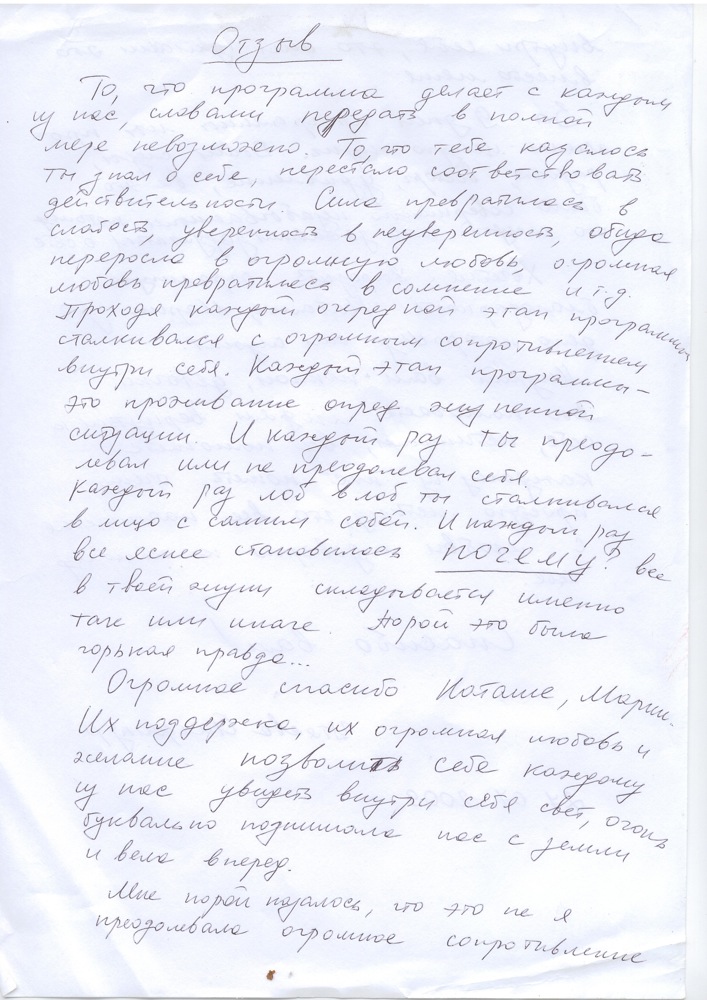 Отзыв
То, что программа делает с каждым
из нас, словами передать в полной
мере невозможно. То, что тебе казалось
ты знал о себе, перестало соответствовать
действительности. Сила превратилась в
слабость, уверенность в неуверенность, обида
переросла в огромную любовь, огромная
любовь превратилась в сомнение и т.д.
Проходя каждый очередной этап программы
сталкивался с огромным сопротивлением
внутри себя. Каждый этап программы –
это проживание опред жизненной
ситуации. И каждый раз ты преодо-
левал или не преодолевал себя.
Каждый раз лоб в лоб ты сталкивался
в лицо с самим собой. И каждый раз
все яснее становилось ПОЧЕМУ? все
в твоей жизни складывается именно
так или иначе. Порой это была
горькая правда...
Огромное спасибо Наташе, Марии.
Их поддержка, их огромная любовь и
желание позволить себе каждому
из нас увидеть внутри себя свет, огонь
буквально поднимала нас с земли
и вела вперед.
Мне порой казалось, что это не я
преодолевала огромное сопротивление